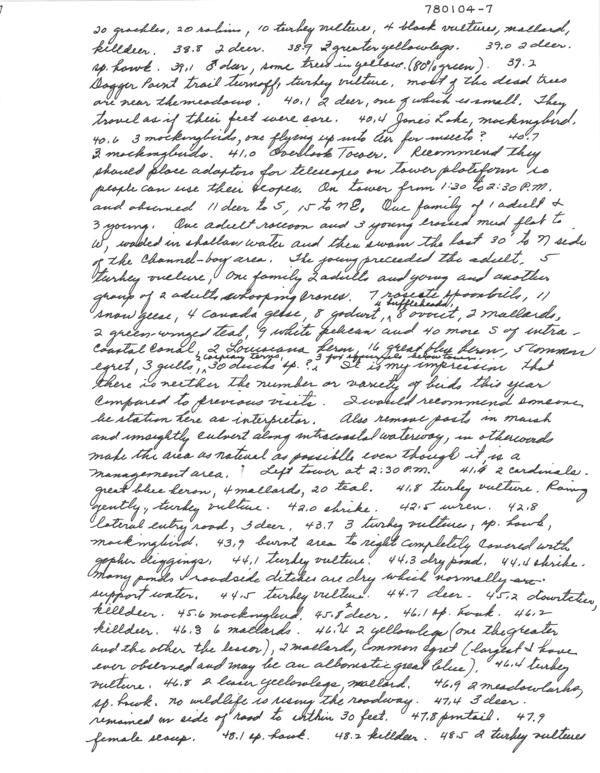 780104-7
20 grackles, 20 robins, 10 turkey vulture, 4 black vultures, mallard,
killdeer. 38.8 2 deer. 38.9 2 greater yellowlegs. 39.0 2 deer.
sp. hawk. 39.1 3 deer, some trees in yellow (80% green). 39.2
Dagger Point trail turnoff, turkey vulture, most of the dead trees
are near the meadows. 40.1 2 deer, one of which is small. They
travel as if their feet were sore. 40.4 Jones Lake, mockingbird.
40.6 3 mockingbirds, one flying up into air for insects? 40.7
3 mockingbirds. 41.0 Overlook Tower. Recommend they
should place adaptors for telescopes on tower plateform so
people can use their scopes. On tower from 1:30 to 2:30 P.M.
and observed 11 deer to S, 15 to NE, One family of 1 adult &
3 young. One adult raccoon and 3 young crossed mud flat to
W, waded in shallow water and then swam the last 30' to N side
of the channel-bay area. The young preceeded the adult. 5
turkey vulture, One family 2 adults and young and another
group of 2 adults whooping cranes, 7 roseate spoonbills, 11
snow geese, 4 canada geese, 8 godwit, 4 buffleheads, 8 avocet, 2 mallards,
2 green-winged teal, 9 white pelican and 40 more S of intra-
coastal canal, 2 Louisiana heron, 16 great blue heron, 5 common
egret, 3 gulls, 2 caspian terns, 30 ducks sp.?, 3 fox squirrels below tower. It is my impression that
there is neither the number or variety of birds this year
compared to previous visits. I would recommend someone
be station here as interpretor. Also remove posts in marsh
and unsightly culvert along intracoastal waterway, in otherwords
make the area as natural as possible even though it is a
management area. Left tower at 2:30 P.M. 41.4 2 cardinals.
great blue heron, 4 mallards, 20 teal. 41.8 turkey vulture. Raining
gently, turkey vulture. 42.0 shrike. 42.5 wren. 42.8
lateral entry road, 3 deer. 43.7 3 turkey vultures, sp. hawk,
mockingbird. 43.9 burnt area to right completely covered with
gopher diggings. 44.1 turkey vulture. 44.3 dry pond. 44.4 shrike.
Many ponds & roadside ditches are dry which normally are
support water. 44.5 turkey vulture. 44.7 deer. 45.2 dowitcher,
killdeer. 45.6 mockingbird. 45.8 2 deer. 46.1 sp. hawk. 46.2
killdeer. 46.3 6 mallards. 46.4 2 yellowlegs (one the greater
and the other the lessor), 2 mallards, common egret (largest I have
ever observed and may be an albonistic great blue). 46.4 turkey
vulture. 46.8 2 lesser yellowlegs, mallard. 46.9 2 meadowlarks,
sp. hawk. No wildlife is using the roadway. 47.4 3 deer
remained on side of road to within 30 feet. 47.8 pintail. 47.9
female scaup. 48.1 sp. hawk. 48.2 killdeer. 48.5 2 turkey vultures